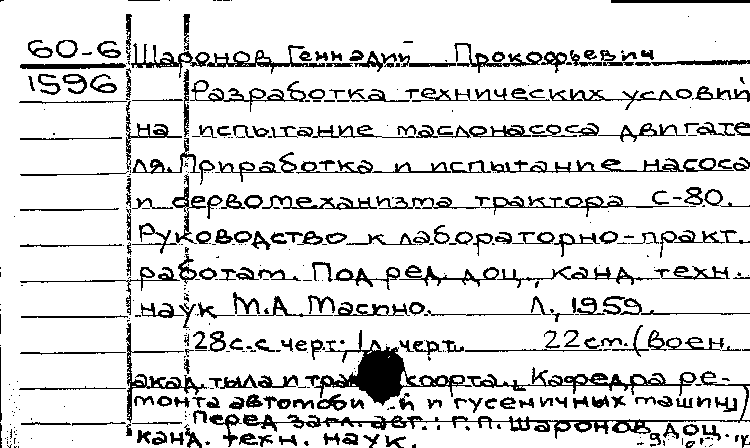 60-6 Шаронов, Геннадий Прокофьевич
1596 Разработка технических условий
на испытание маслонасоса двигате
ля. Приработка и испытание насоса
и сервомеханизма трактора С-80.
Руководство к лабораторно-практ.
работам. Под ред. доц., канд. техн.
наук М.А. Масино. Л., 1959.
28с. с черт; 1 л. черт. 22см. (Воен.
акад. тыла и транспорта. Кафедра ре-
монта автомоби й и гусеничных машин)
Перед загл. авт.: Г.П. Шаронов, доц.,
канд. техн. наук.